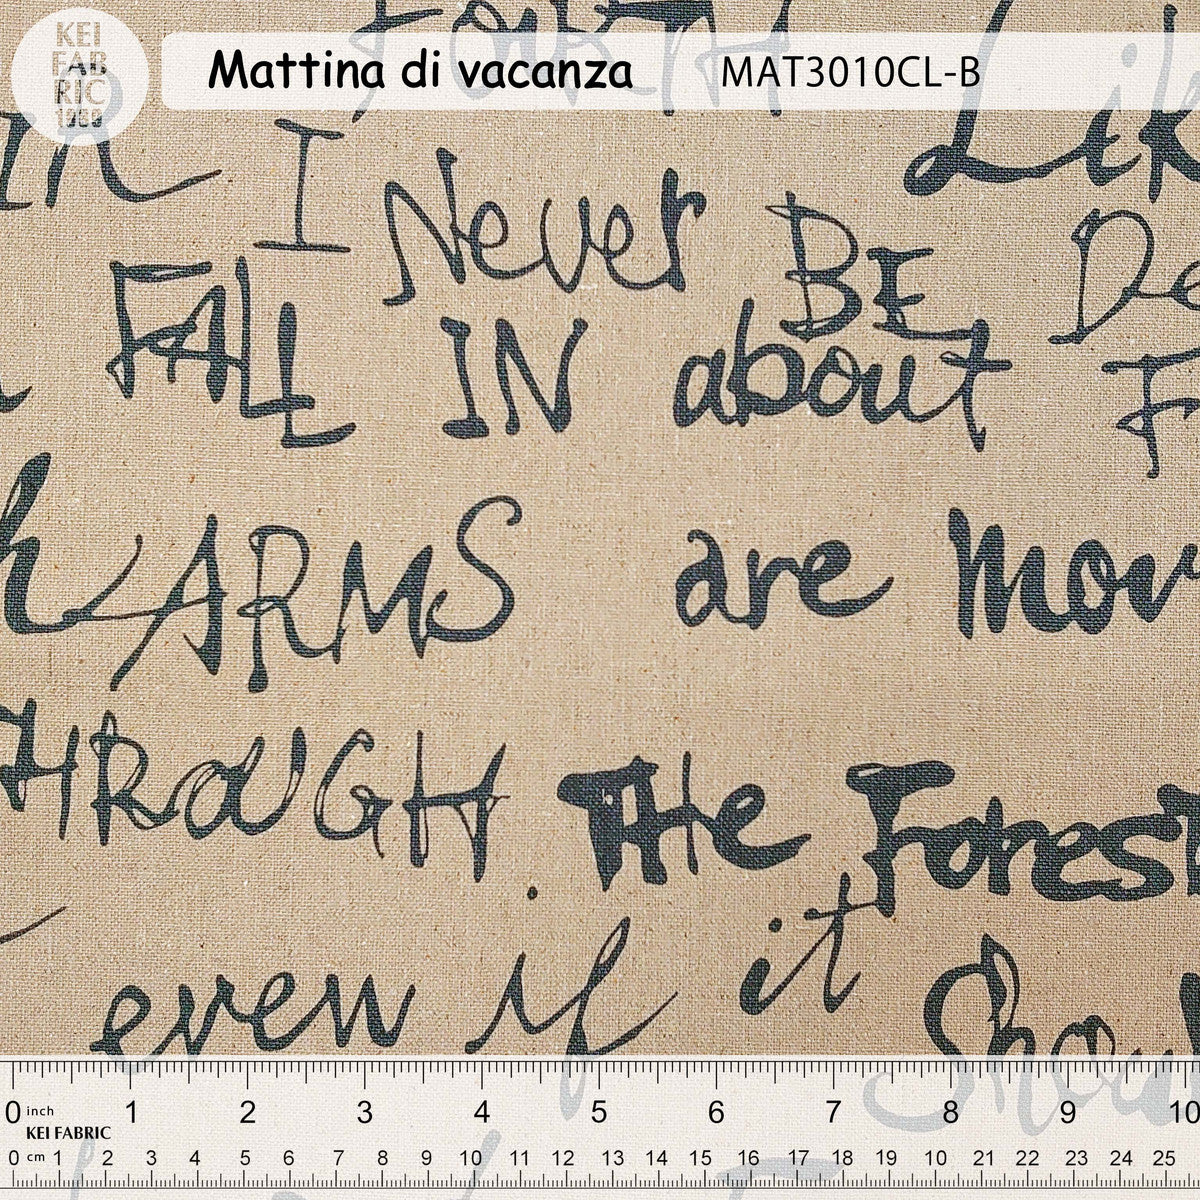 KEI
FAB
RIC
1980
Mattina di vacanza MAT3010CL-B
FORTH Lik
in I Never BE De
FALL IN about F
ARMS are mov
THROUGH THe Forest
even if it Shou
0 inch 1 2 3 4 5 6 7 8 9 10
KEI FABRIC
0 cm 1 2 3 2 5 6 7 8 9 10 11 12 13 14 15 16 17 18 19 10 21 22 23 24 25